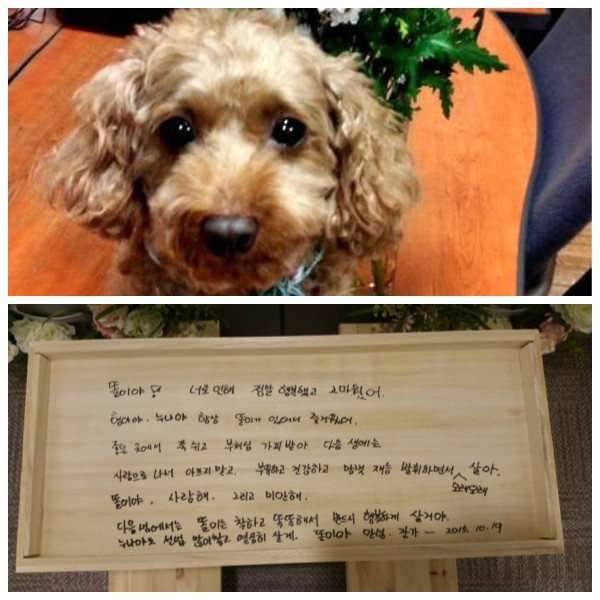 똘이야 너로 인해 정말 행복했고 고마웠어.
엄마야. 누나야 항상 똘이가 있어서 즐거웠어.
좋은 곳에서 푹 쉬고 부처님 가피 받아 다음 생에는
사람으로 나서 아프지 말고. 부유하고 건강하고 맘껏 재능 발휘하면서 오래오래 살아.
똘이야, 사랑해. 그리고 미안해.
다음번에서는 똘이는 착하고 똑똑해서 반드시 행복하게 살거야.
누나야도 선업 많이쌓고 열심히 살게. 똘이야 안녕. 잘가 — 2015. 10. 19